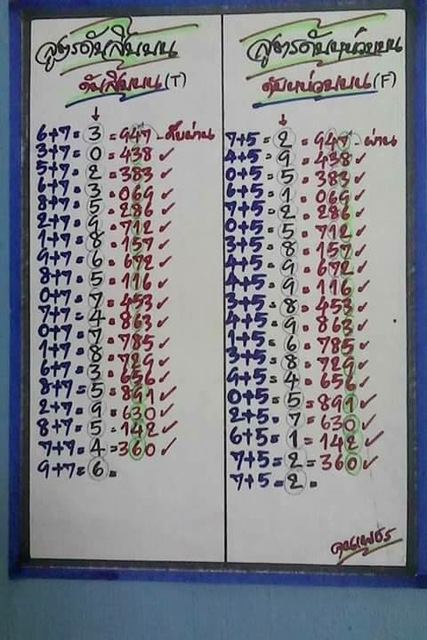 สูตรดับสิบบน
ดับสิบบน (T)
↓
6+7=3=947-ดับผ่าน
3+7=0=438✓
5+7=2=383✓
6+7=3=069✓
8+7=5=286✓
2+7=9=712✓
1+7=8=157✓
9+7=6=672✓
8+7=5=116✓
0+7=7=453✓
7+7=4=863✓
0+7=7=785✓
1+7=8=729✓
6+7=3=656✓
8+7=5=891✓
2+7=9=630✓
8+7=5=142✓
7+7=4=360✓
9+7=6=
สูตรดับหน่วยบน
ดับหน่วยบน (F)
↓
7+5=2=947-ผ่าน
4+5=9=438✓
0+5=5=383✓
6+5=1=069✓
7+5=2=286✓
0+5=5=712✓
3+5=8=157✓
4+5=9=672✓
4+5=9=116✓
3+5=8=453✓
4+5=9=863✓
1+5=6=785✓
3+5=8=729✓
9+5=4=656✓
0+5=5=891✓
2+5=7=630✓
6+5=1=142✓
7+5=2=360✓
7+5=2=